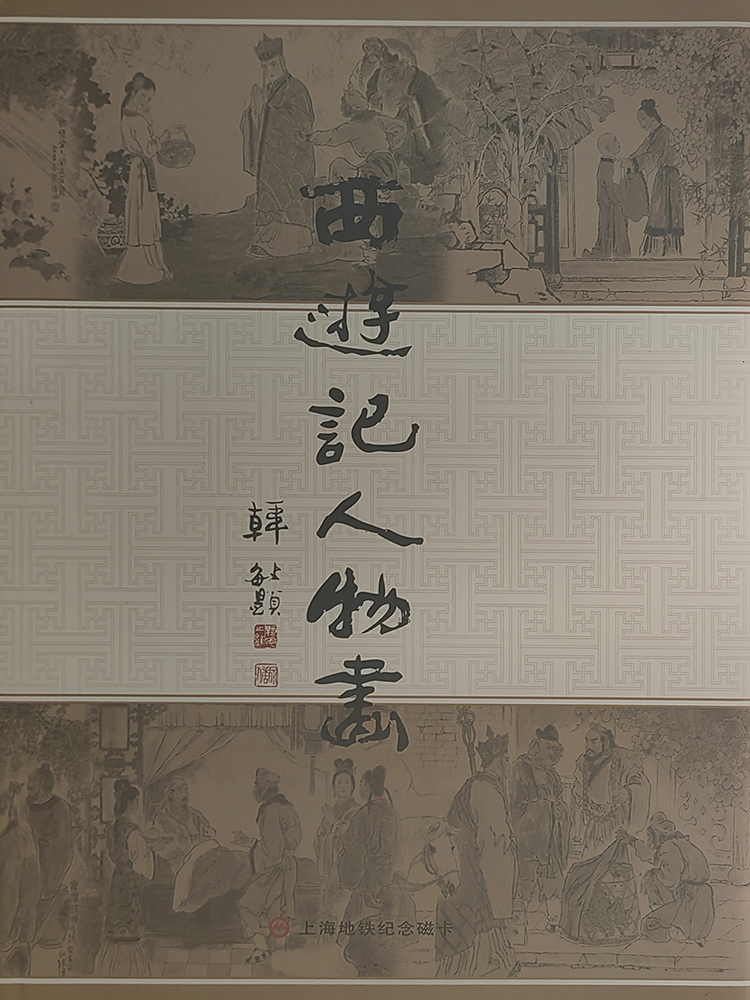 西遊記人物畫
韓敏題
上海地铁纪念磁卡